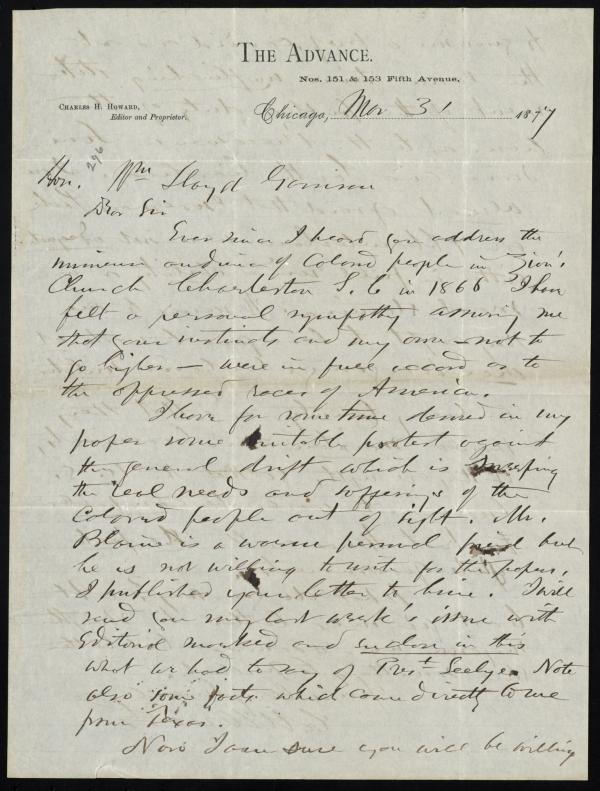 THE ADVANCE.
Nos. 151 & 153 Fifth Avenue.
CHARLES H. HOWARD,
Editor and Proprietor.
Chicago, Mar 31 1877
296
Hon. Wm Lloyd Garrison
Dear Sir
Ever since I heard you address the
immense audience of Colored people in Zion's
Church Charleston S. C in 1865 I have
felt a personal sympathy assuring me
that your instincts and my own – not to
go higher – were in full accord as to
the oppressed races of America.
I have for some time desired in my
paper some suitable protest against
the general drift which is sweeping
the real needs and sufferings of the
Colored people out of sight. Mr.
Blaine is a warm personal friend but
he is not willing to write for the papers.
I published your letter to him. I will
send you my last week's issue with
Editorial marked and enclose in this
what we had to say of Prest Seelye. Note
also some facts which came directly to me
from Texas.
Now I am sure you will be willing